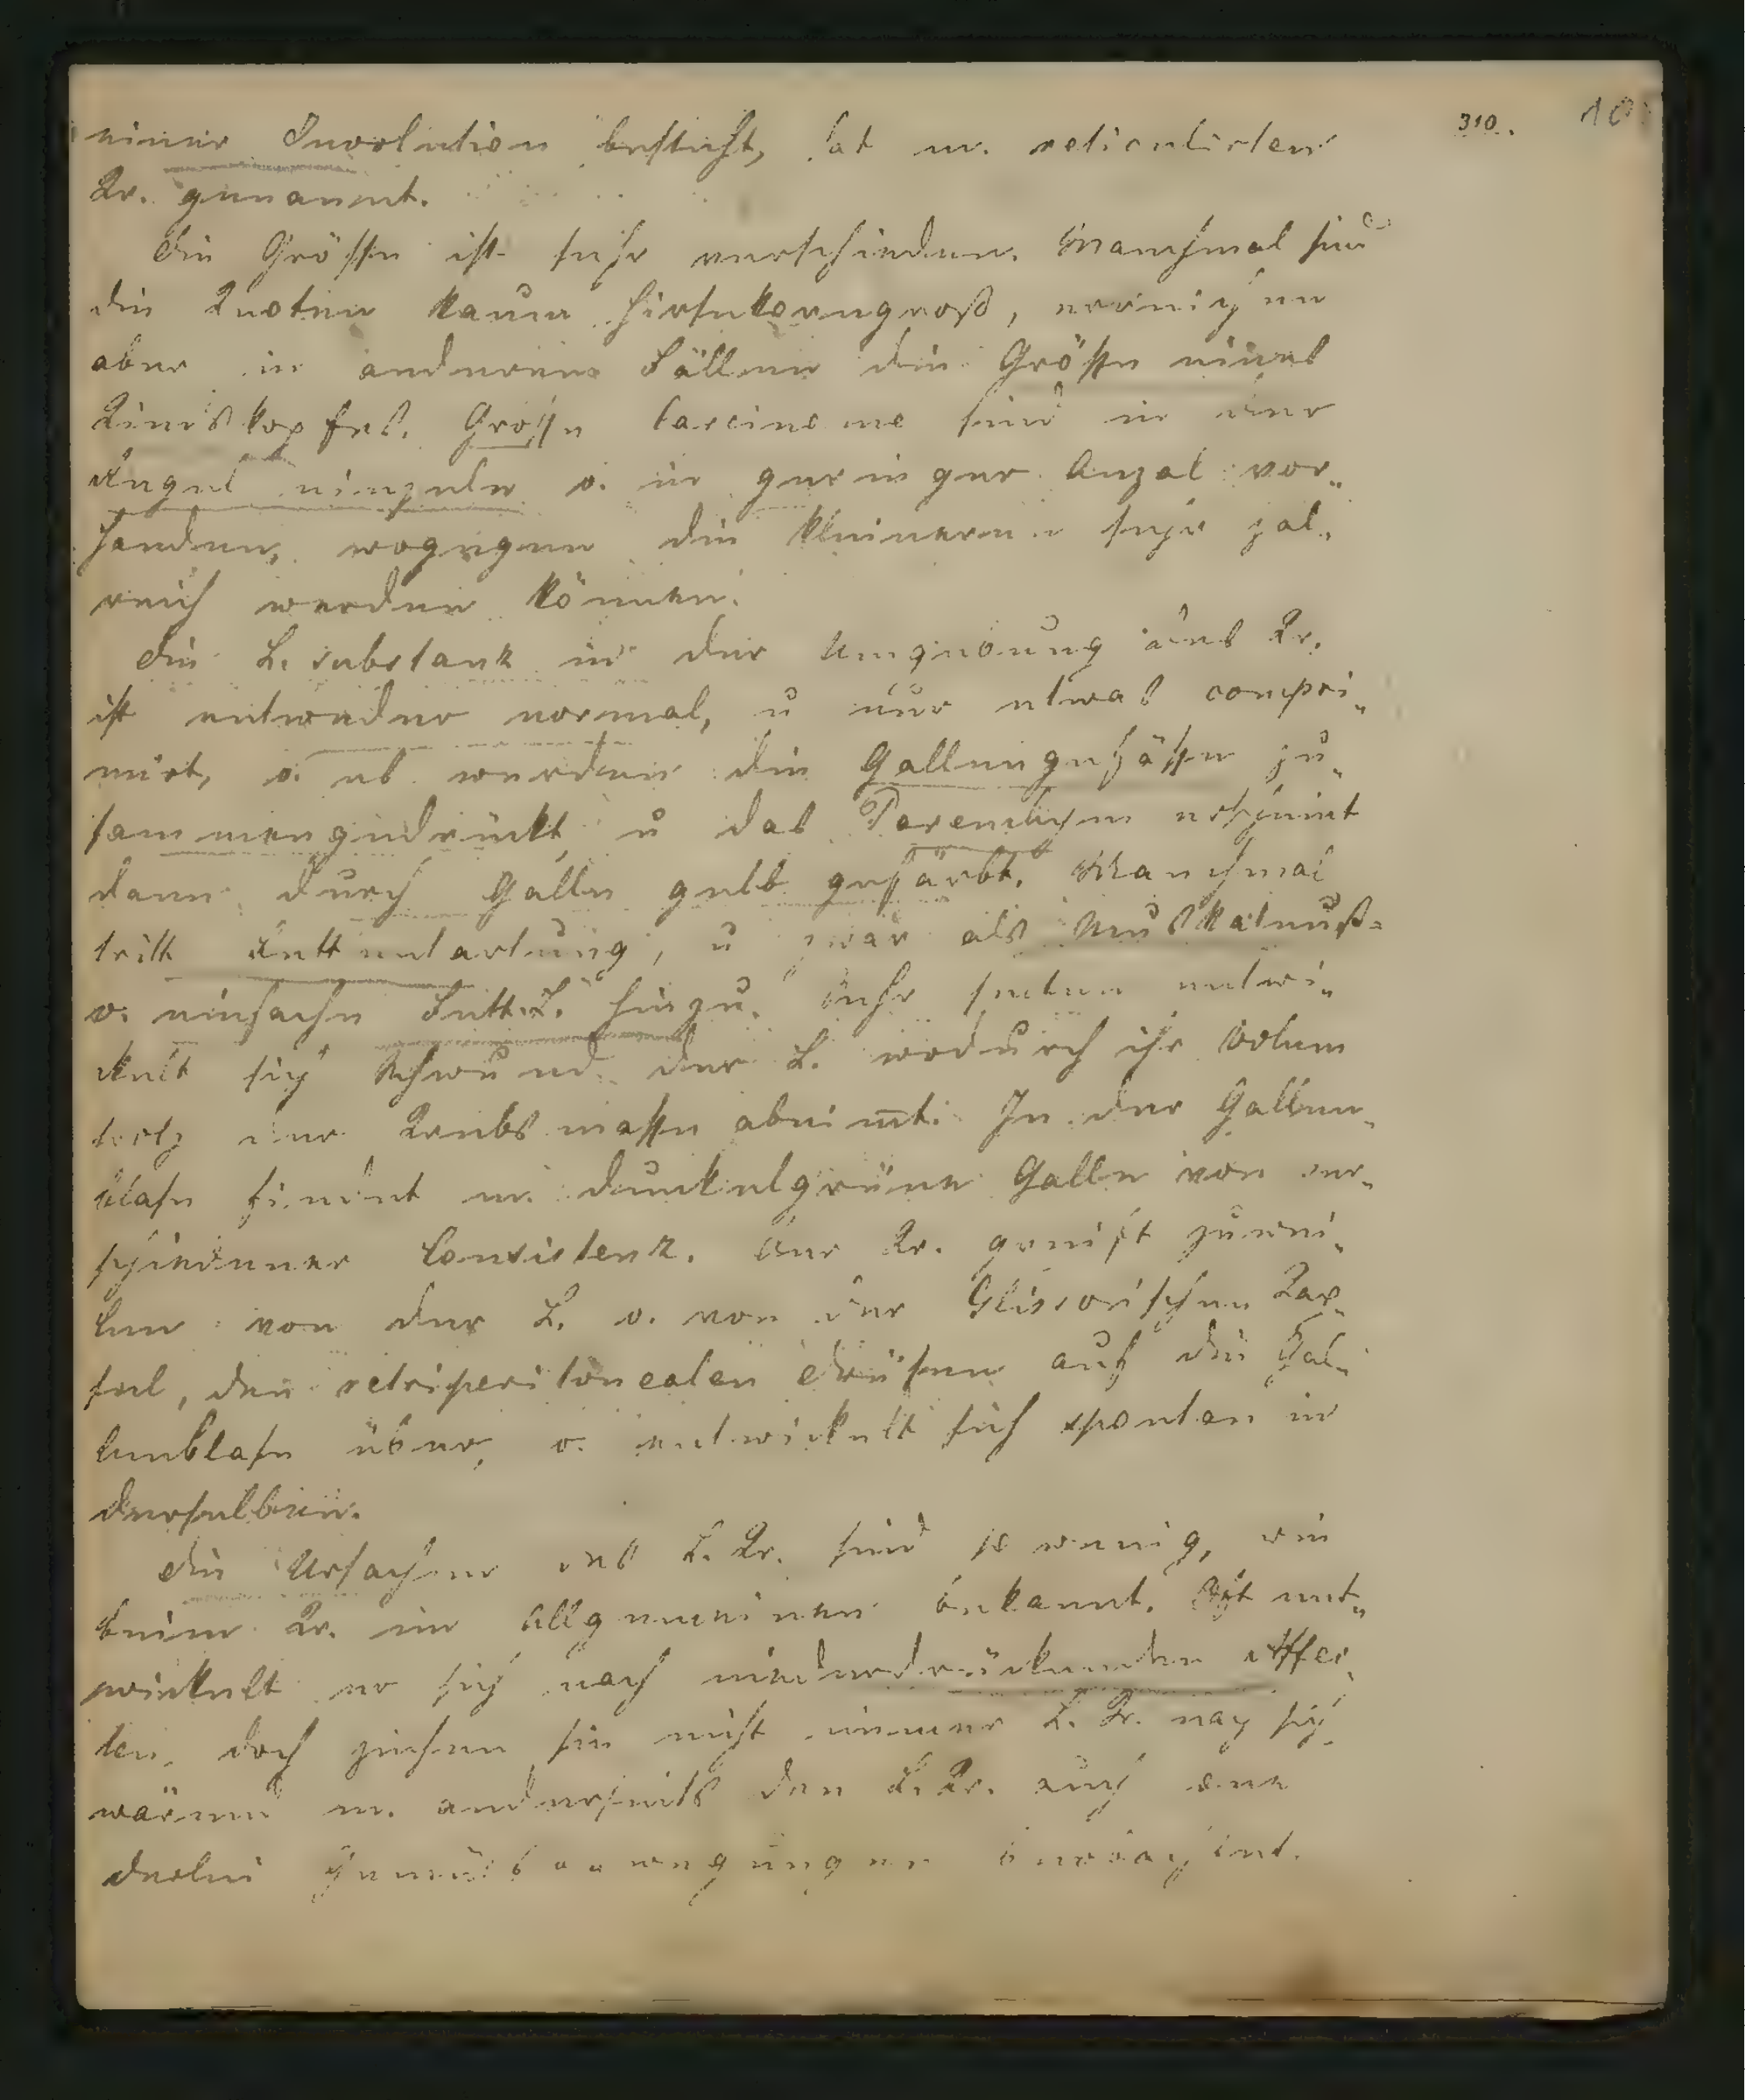 310. 10
einer Involution besteht, hat m. reticulirten
Kr. genannt.
Die Grösse ist sehr verschieden. Manchmal sind
die Knoten kaum hirsekorngroß, erreichen
aber in anderen Fällen die Grösse eines
Kindskopfes. Grosse Carcinome sind in der
Regel einzeln o. in geringer Anzal vor„
handen, wogegen die kleineren sehr zal„
reich werden können.
Die L. substanz in der Umgebung des Kr.
ist entweder normal, u nur etwas compri„
mirt, o. es werden die Gallengefässe zu„
sammengedrückt u das Parenchym erscheint
dann durch Galle gelb gefärbt. Manchmal
tritt Fettentartung, u zwar als Muskatnuß=
o. einfache Fett.L. hinzu. Sehr selten entwi„
kelt sich Schwund der L. wodurch ihr Volum
trotz der Krebsmasse abnimt. In der Gallen„
blase findet m. dunkelgrüne Galle von ver„
schiedener Consistenz. Der Kr. greift zuwei„
len von der L. o. von der Glissonischen Kap„
sel, den retroperitonealen Drüsen auf die Gal„
lenblase über, o. entwickelt sich spontan in
derselben.
Die Ursachen des L. Kr. sind so wenig, wie
beim Kr. im Allgemeinen bekannt. Oft ent„
wickelt er sich nach niederdrückenden Affec„
ten, doch ziehen sie nicht immer L. Kr. nach sich
wärend m. anderseits den L. Kr. auch one
derlei Gemütsbewegungen beobachtet.